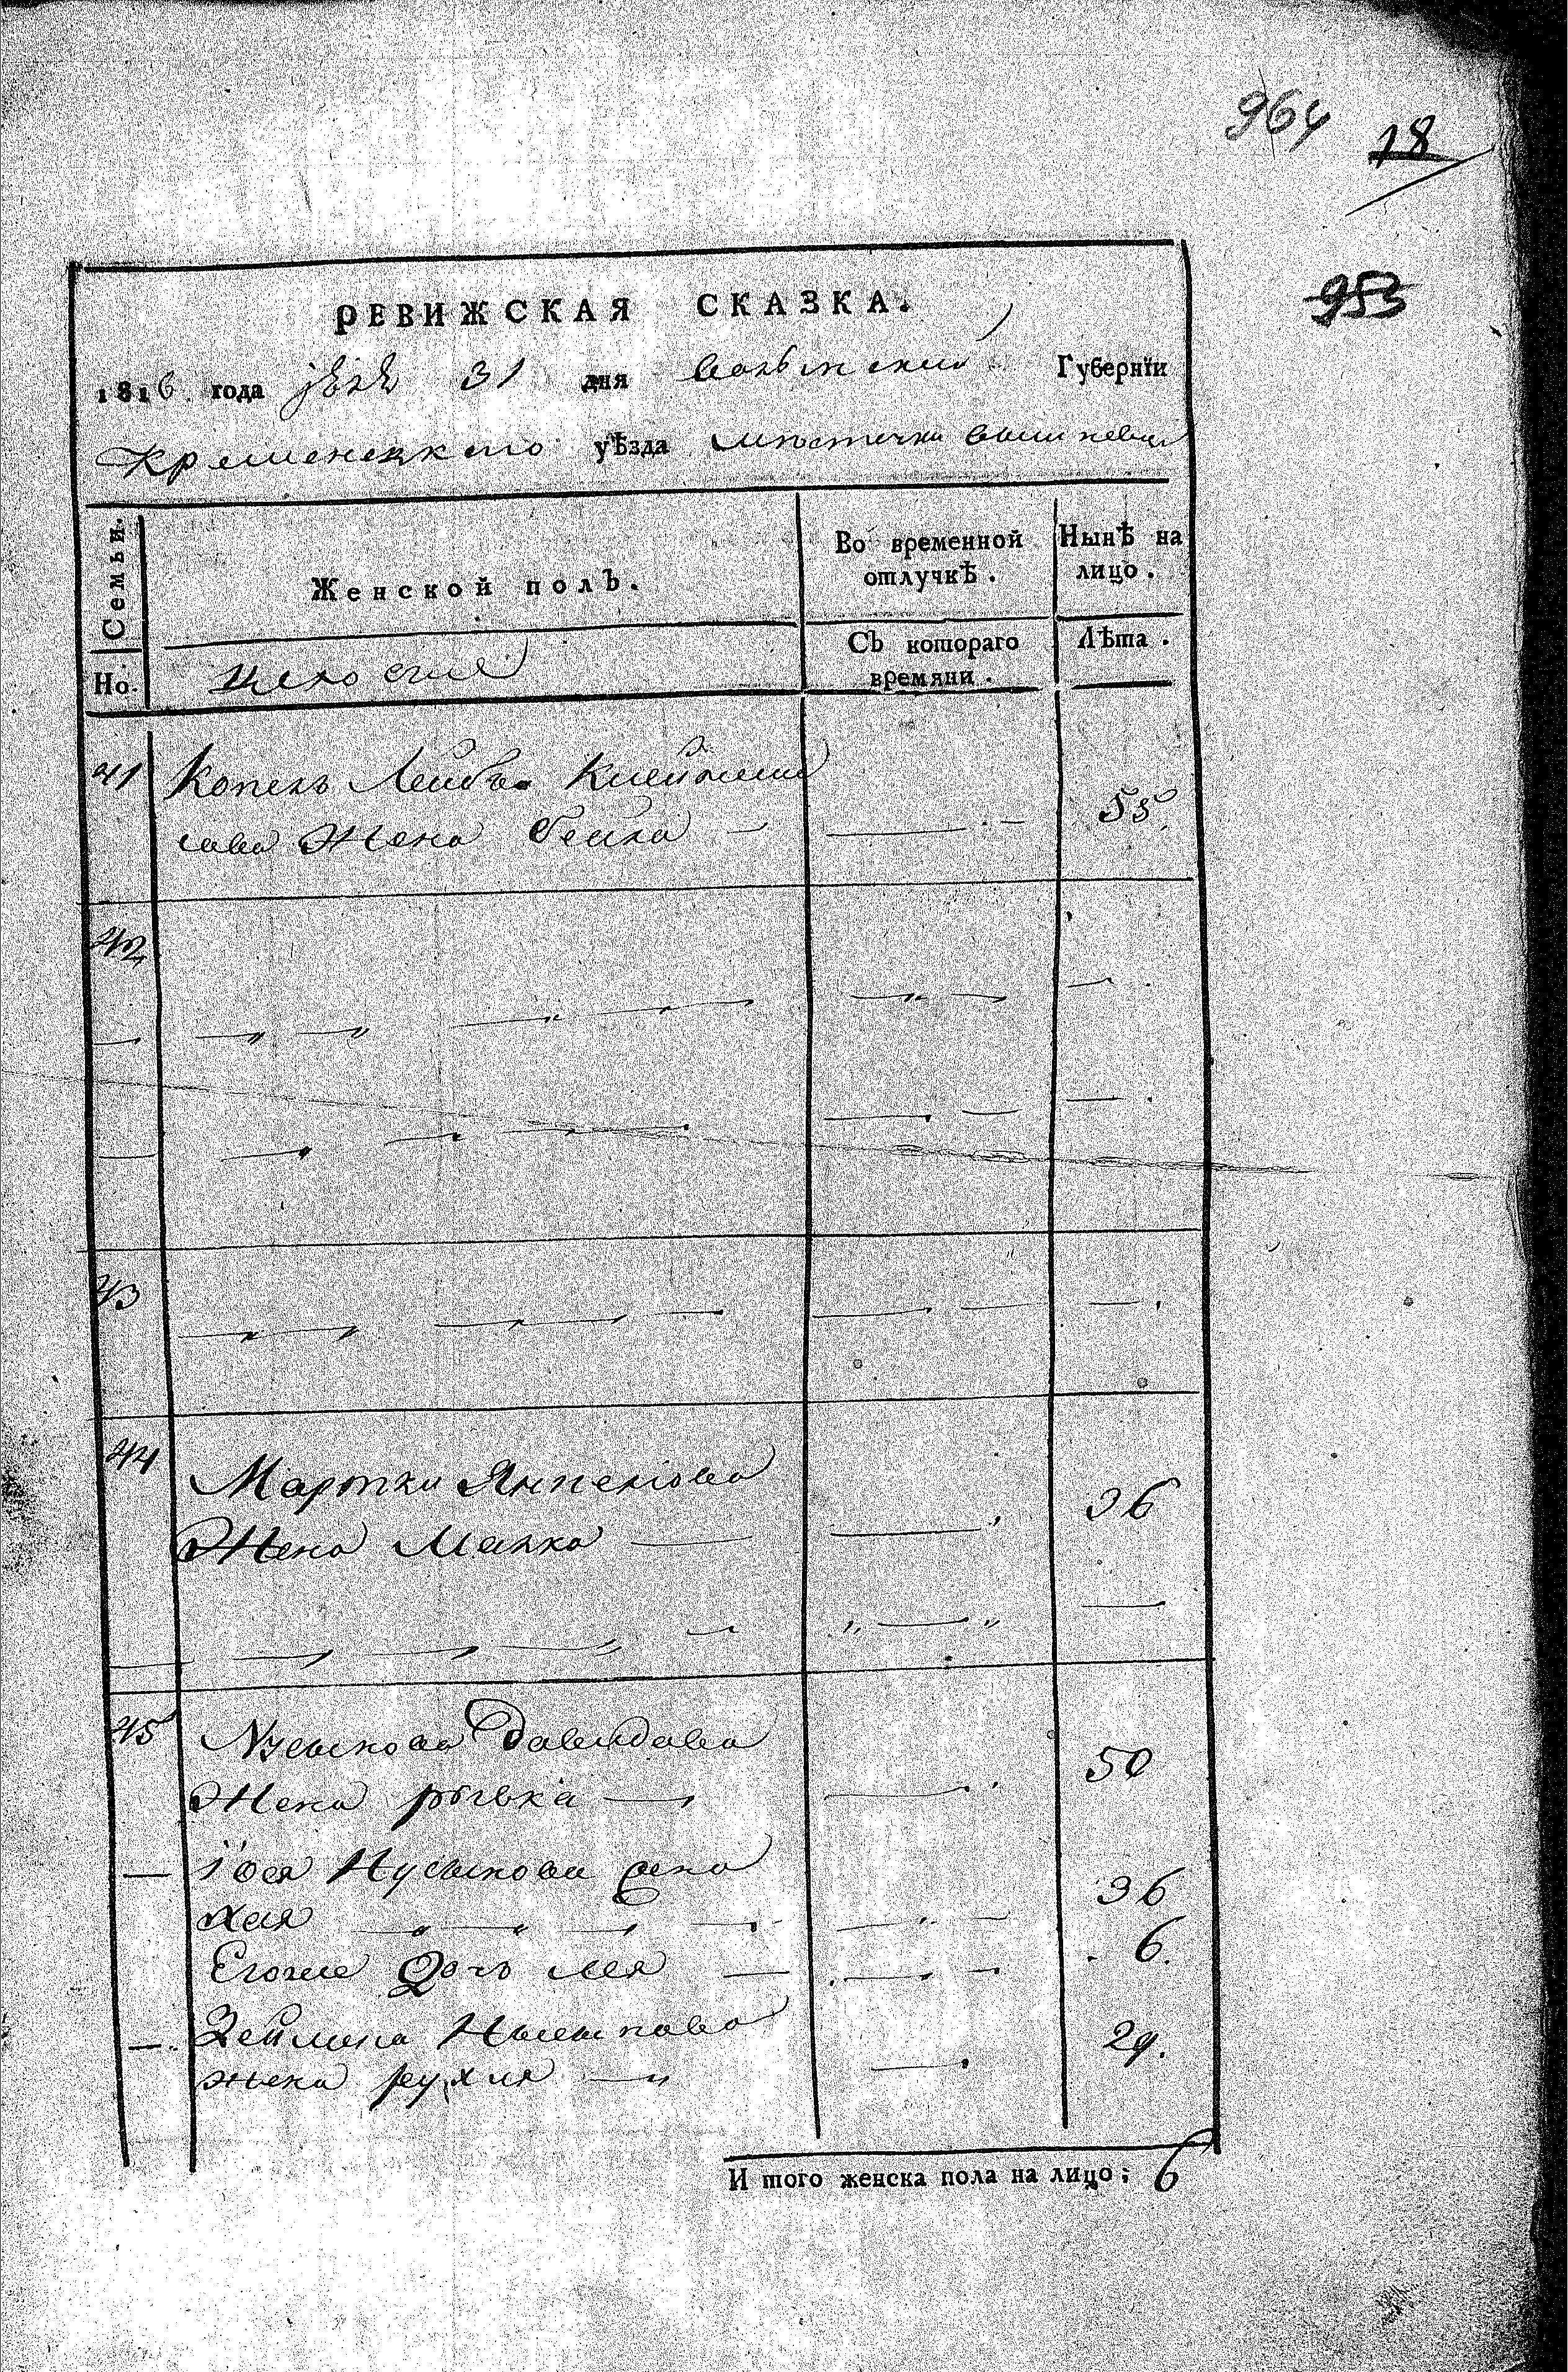 964
18
953
РЕВИЖСКАЯ СКАЗКА.
1816 года 31 дня волынский Губернїи
Кременецкого уѣзда мѣстечка вишневца
Семьи.
Женской полЪ.
Во временной отлучкѣ.
Нынѣ на лицо.
Но.
СЪ котораго времяни.
Лѣта.
41 Копель Лейбъ
жена Бейла — 55
42
43
44 Мартки
Жена Малка — 36
45 Нусынова Давидова
Жена рывка — 50
— Іося Нусынова жена
хая 36
Егоже Дочь лея — 6.
— Зейлика
жена рухля — 29.
И того женска пола на лицо; 6